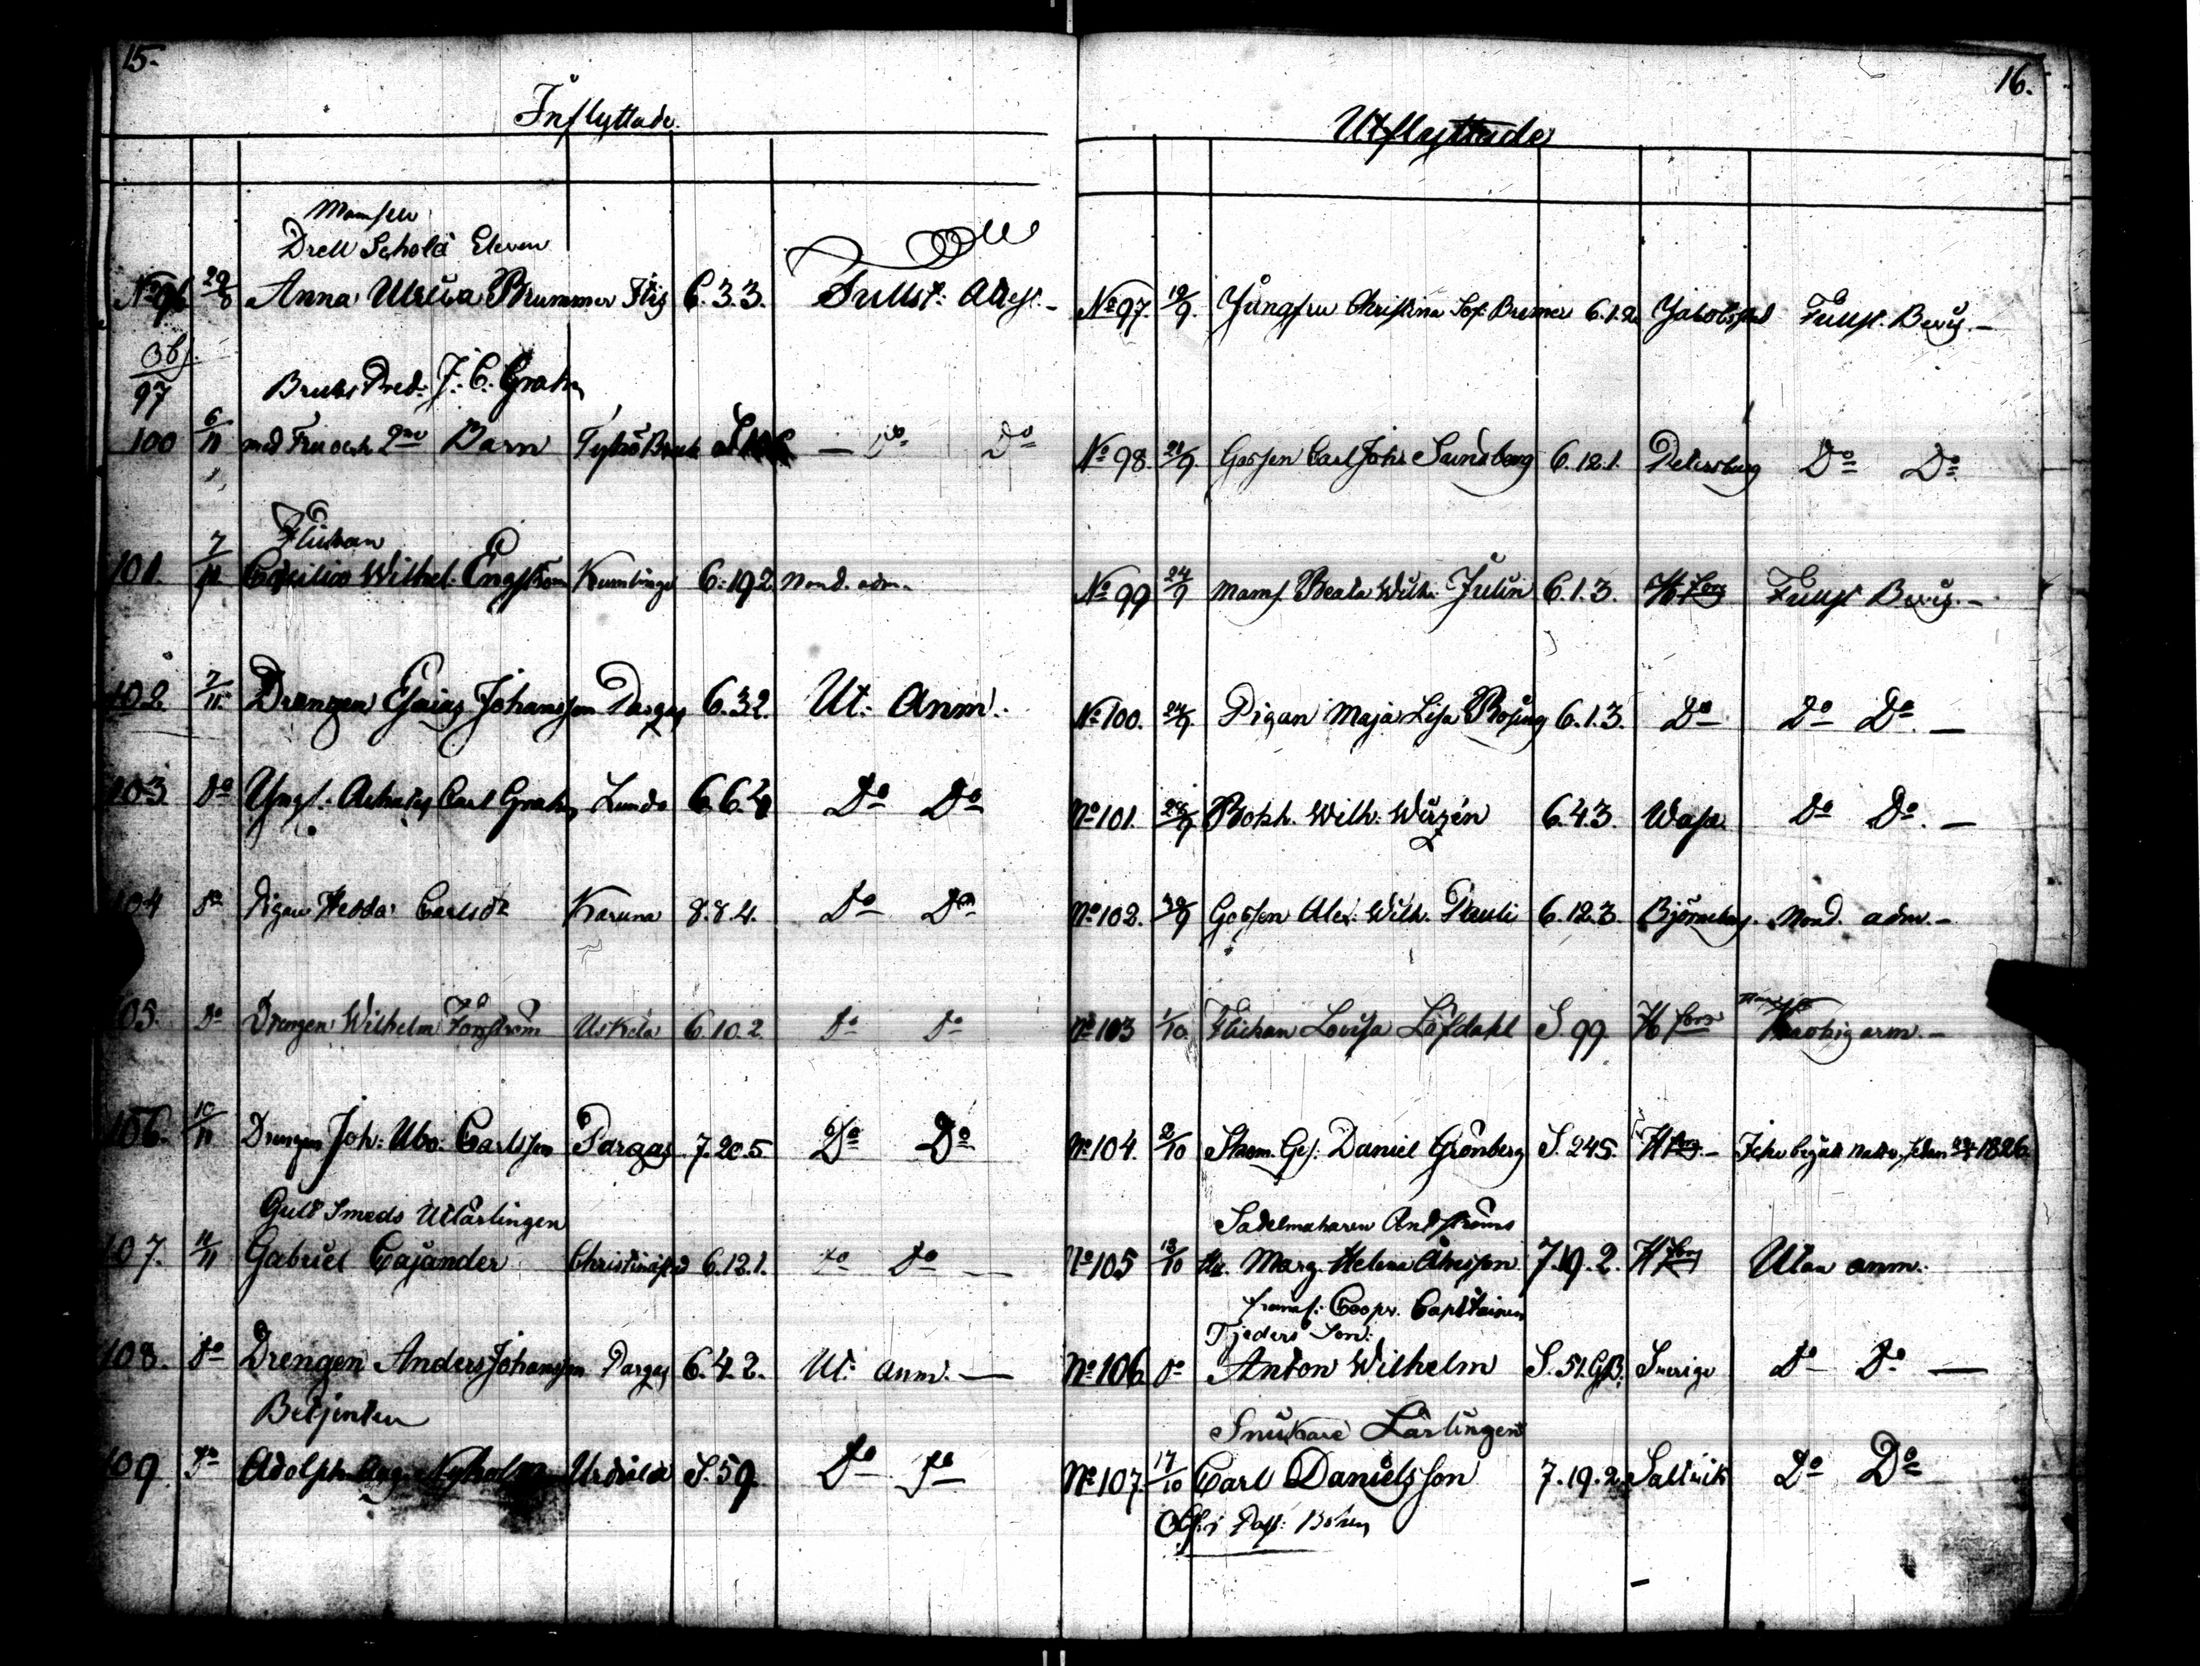 15.
Inflyttade.
Mamsell
Drell Schola Eleven
No 96 29/8 Anna Ulrica Brummer 6.3.3. Fullst: Attest. -
Obs.
97 Bruks Pred: J: C: Grahn
100 6/11 med Fru och 2ne Barn Tykö Bruk — Do Do
Flickan
101. 7/11 Wilhel: Engström Kumlinge 6.19.2 Nond. adm.
102. 7/11 Drengen Esaias Johansson Pargas 6.3.2. Ut: Anm.
103. Do Carl Grahn Lundo 6.6.4 Do Do
104 Do Pigan Hedda Carlsdr Karuna 8.8.4. Do Do
105. Do Drengen Wilhelm Forsström Uskela 6.10.2. Do Do
106. 10/11 Drengen Joh: Carlsson Pargas 7.20.5 Do Do
Guld Smeds Utlärlingen
107. 11/11 Gabriel Cajander Christinæst 6.12.1. Do Do —
108. Do Drengen Anders Johansson Pargas 6.4.2. Ut: anm. —
Betjenten
109 Do Adolph Aug: Nyholm Urdiala S.59. Do Do
16.
Utflyttade
No 97. 19/9. Jungfru Christina Sof: Bremer 6.1.2. Jakobstad Fullst. Bevis. —
No 98. 21/9. Gossen Carl Joh: Sundberg 6.12.1. Petersburg Do Do
No 99 24/9 Mams. Beata Wilh: Julin 6.1.3. H fors Fullst Bevis. —
No 100. 24/9. Pigan Maja Lisa Rosing 6.1.3. Do Do Do. —
No 101. 28/9 Bokh. Wilh: Wirzén 6.4.3. Wasa Do Do. —
No 102. 29/9 Gossen Alex: Wilh. Pauli 6.12.3. Björneborg. Nond. adm. —
No 103 1/10. Flickan Lovisa Löfdahl S. 99. H fors arm. —
No 104. 2/10 Daniel Grönberg S. 245. H fors. — Icke begått Nattv. sedan 1826.
Sadelmakaren Andströms
No 105 13/10 Hu. Marg. Helena Åkesson 7.19.2. H fors Utan anm.
Coopv. Capitainen
Tjeders Son:
No 106. Do Anton Wilhelm S. 51. GB. Sverige Do Do —
Snickare Lärlingen
No 107. 17/10 Carl Danielsson 7.19.2. Saltvik Do Do